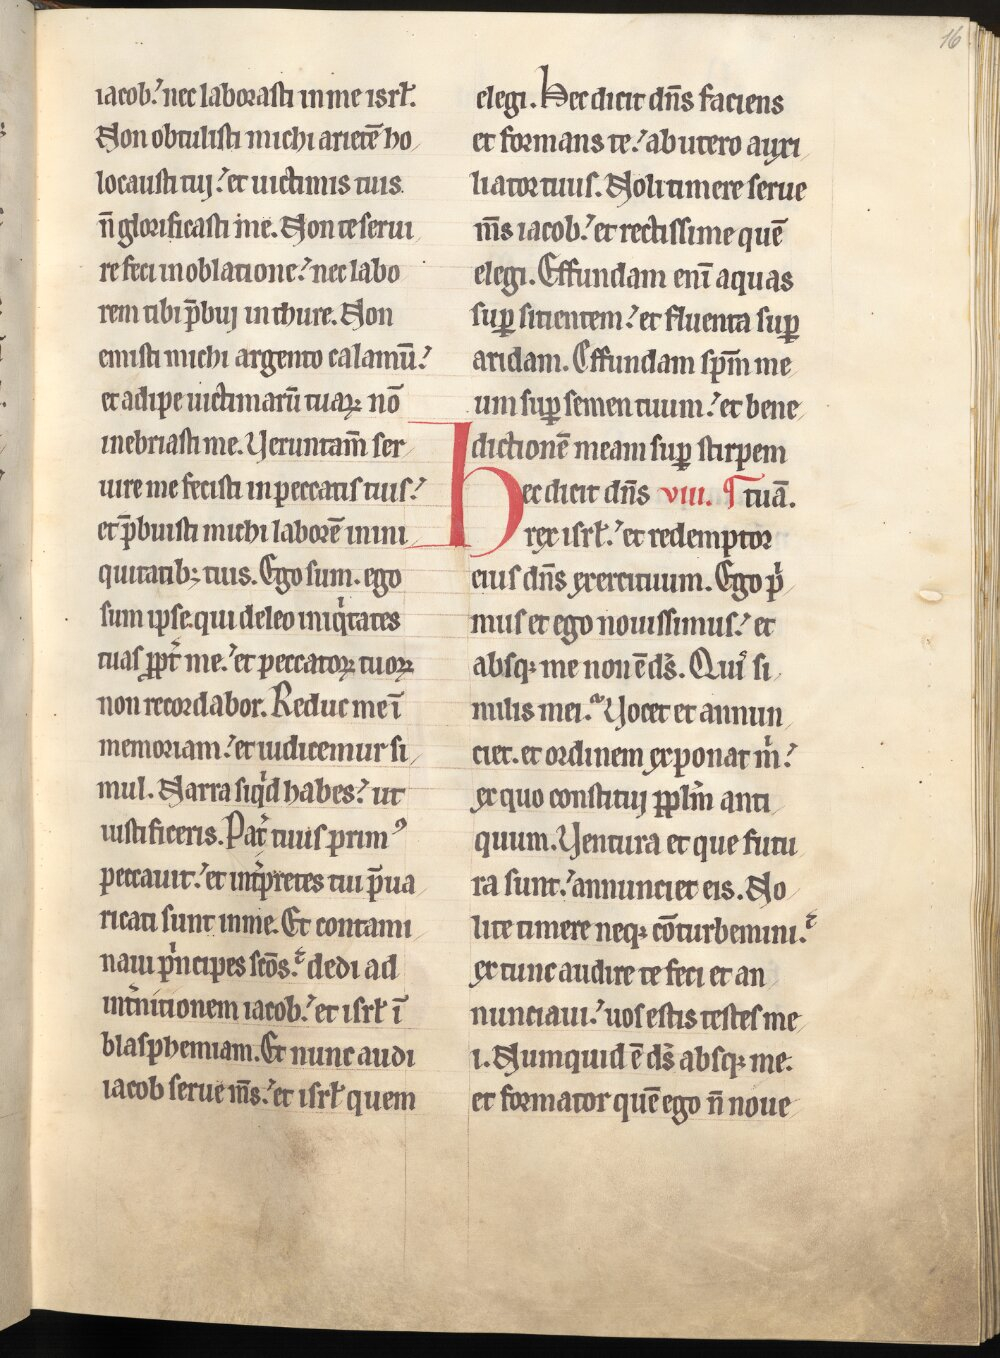 16
iacob? nec laborasti in me isrł.
Non obtulisti michi arietē ho
locausti tuj? et uictimis tuis
n̄ glorificasti me. Non te serui
re feci in oblatione? nec labo
rem tibi p̄buj in thure. Non
emisti michi argento calamū?
et adipe uictimarū tuaꝝ nō
inebriasti me. Veruntam̄ ser
uire me fecisti in peccatis tuis?
et p̄buisti michi laborē in ini
quitatibꝫ tuis. Ego sum. ego
sum ipse. qui deleo iniqͥtates
tuas ꝓpt̄ me? et peccatoꝝ tuoꝝ
non recordabor. Reduc me ī
memoriam? et iudicemur si
mul. Narra si qͥd habes? ut
iustificeris. Pat̄ tuus primꝰ
peccauit? et int̄pretes tui p̄ua
ricati sunt in me. Et contami
naui pͥncipes scōs? dedi ad
int̄nitionem iacob? et isrł ī
blasphemiam. Et nunc audi
iacob serue m̄s? et isrł quem
elegi. Hec dicit dn̄s faciens
et formans te? ab utero auxi
liator tuus. Noli timere serue
m̄s iacob? et rectissime quē
elegi. Effundam enī aquas
suꝑ sitientem? et fluenta suꝑ
aridam. Effundam sp̄m me
um suꝑ semen tuum? et bene
dictionē meam suꝑ stirpem
Hec dicit dn̄s viii. ¶ tuā.
rex isrł? et redemptor
eius dn̄s exercituum. Ego pͥ
mus et ego nouissimus? et
absqꝫ me non ē ds̄. Quis si
milis mei? Vocet et annun
ciet. et ordinem exponat m̊?
ex quo constituj ppl̄m anti
quum. Ventura et que futu
ra sunt? annunciet eis. No
lite timere neqꝫ cōturbemini?
ex tunc audire te feci et an
nunciaui? uos estis testes me
i. Numquid ē ds̄ absqꝫ me.
et formator quē ego n̄ noue